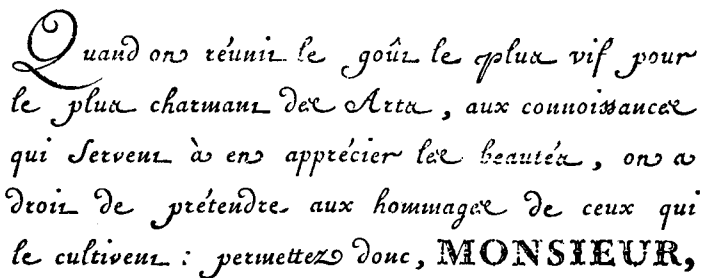 Quand on réunit le goût le plus vif pour
le plus charmant des Arts, aux connoissances
qui servent à en apprécier les beautés, on a
droit de prétendre aux hommages de ceux qui
le cultivent : permettez donc, MONSIEUR,